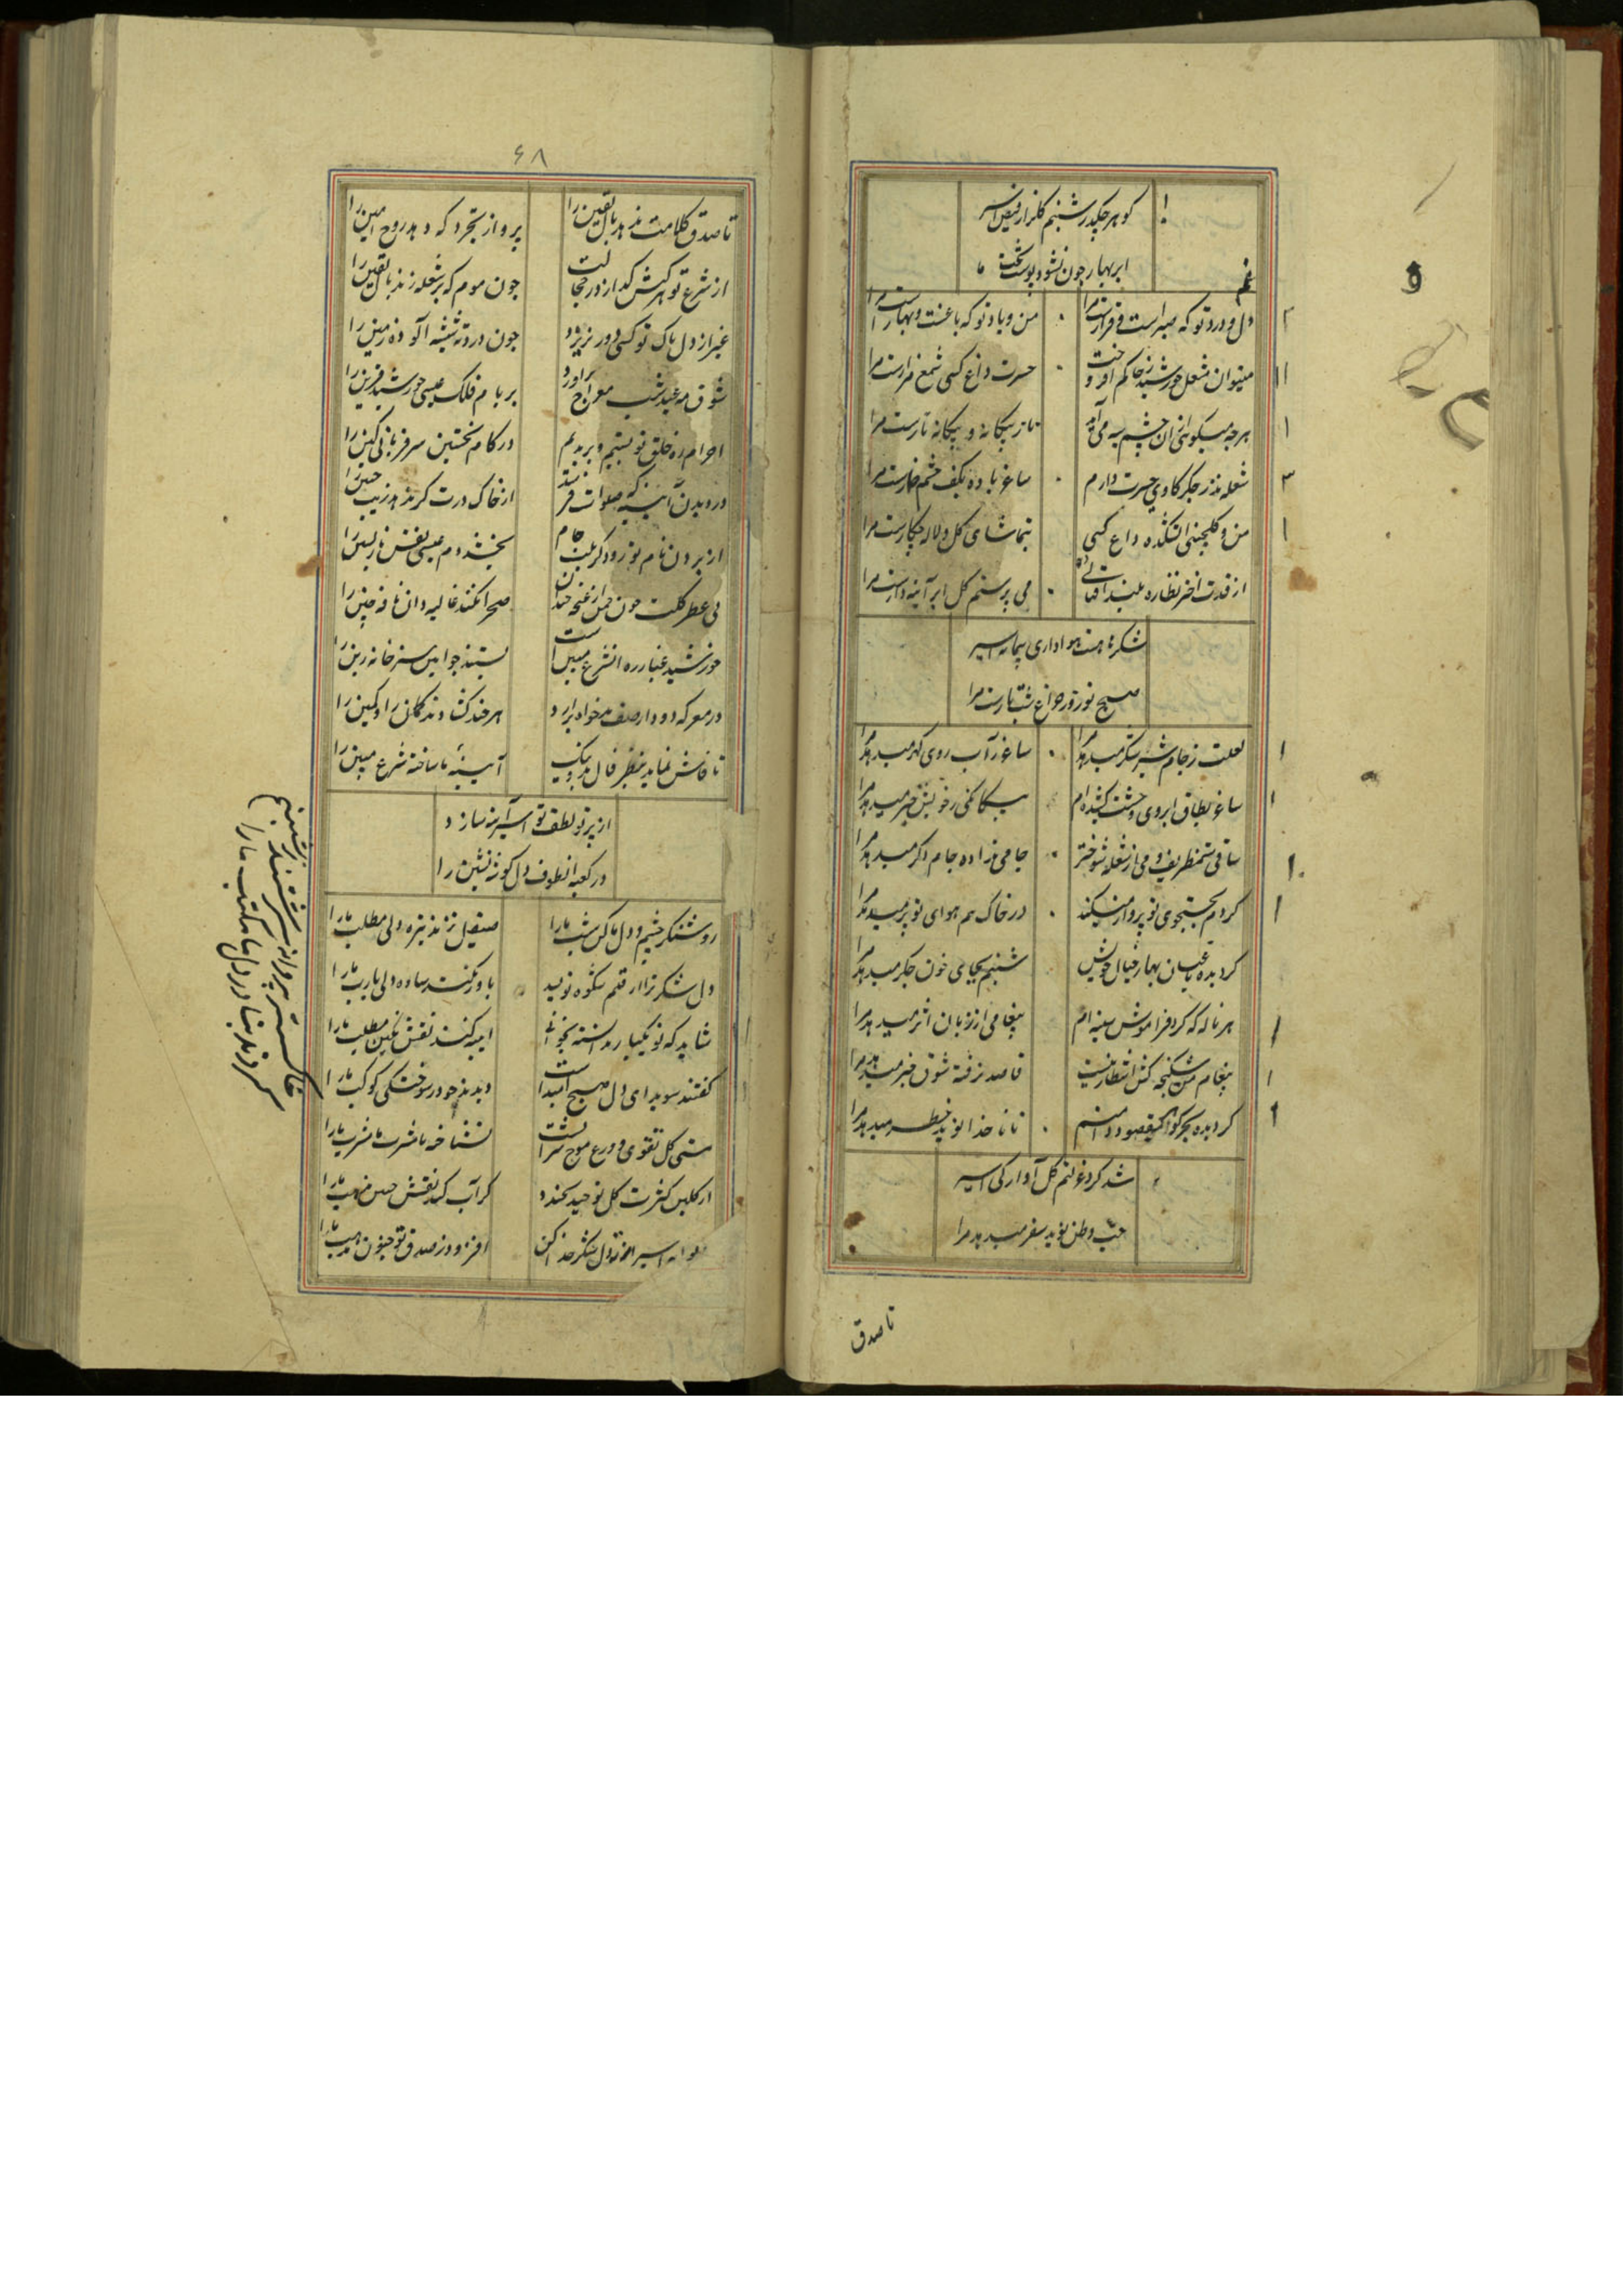 گوهر چکید شبنم گلزار فیض اسیر
ابر بهار چون نشود پوست تخت ما
دل و درد تو که صبر است و قرارست مرا
من و یاد تو که باغست و بهارست مرا
میتوان مشعل خورشید ز خاکم افروخت
حسرت داغ کسی شمع مزارست مرا
هرچه میگوئی ازان چشم سیه می آید
ناز بیگانه و بیگانه نازست مرا
شعله نذر جگر کاوی حسرت دارم
ساغر باده بکف چشم خمارست مرا
من و گلچینی آتشکده داغ کسی
بتماشای گل و لاله چکارست مرا
از قدت اختر نظاره بلند اقبالی
می پرستم گل ابر آینه دارست مرا
شکرها هست هواداری پیمانه اسیر
صبح نوروز چراغ شب تارست مرا
لعلت ز جام شیر شکر میدهد مرا
ساغر ز آب روی گهر میدهد مرا
ساغر بطاق ابروی وحشت کشیده ام
بیگانگی ز خویش خبر میدهد مرا
ساقی ستمظریف و می از شعله شوختر
جامی نداده جام دگر میدهد مرا
گردم بجستجوی تو پرواز میکند
در خاک هم هوای تو پر میدهد مرا
گردیده باغبان بهار خیال خویش
شبنم بجای خون جگر میدهد مرا
هر ناله که کرد فراموش سینه ام
پیغامی از زبان اثر میدهد مرا
پیغام من شکنجه کش انتظار نیست
قاصد نرفته شوق خبر میدهد مرا
گردیده بحر گوهر مقصود دامنم
تا ناخدا نوید خطر میدهد مرا
شد گرد غربتم گل آوارگی اسیر
حب وطن نوید سفر میدهد مرا
تا صدق
۶۸
تا صدق کلامت ندهد بال یقین را
پرواز تجرد که دهد روح امین را
از شرع تو هرکس گدازد ز خجالت
چون موم که بر شعله زند بال یقین را
غیر از دل پاک تو کسی دور نریزد
چون درد ته شیشه آلوده زمین را
شوق مه عید شب معراج برآورد
بر بام فلک عیسی خورشید قرین را
احرام ره خلق تو بستیم و بریدیم
در کام نخستین سر قربانی کین را
در دیدن آیینه که صلوات فرستد
از خاک درت گر ندهد زیب جبین را
از بردن نام تو زود گر بلب جام
بخشد دم عیسی نفس بازپسین را
بی عطر گلت چون چمن از غنچه خندان
صحرا نکند غالیه دان نافه چین را
خورشید غبار ره از شرع مبین است
بستند چو آیین سر خانه زین را
در معرکه دود از صف بدخواه برآرد
هر چند گشادند کمان را و کمین را
تا فاش نماید بنظر فال بد و نیک
آیینه ما ساخته شرع مبین را
از پرتو لطف تو اسیر آینه سازد
در کعبه انطوف دل گوشه نشین را
روشنگر چشم و دل ما کن شب ما را
صیقل نزند تیره دلی مطلب ما را
دل شکر ترا از قلم شکوه نویسد
باور نکند ساده دلی یارب ما را
شاید که تو یکبار ندانسته بخوانی
آیینه کند نقش نگین مطلب ما را
گفتند سویدای دل صبح امیدست
دیدند چو در سوختگی کوکب ما را
مستی گل تقوی و ورع موج شرابست
نشناخته با مشرب ما مشرب ما را
از گلبن کثرت گل توحید بخندد
گر آب کند نقش حسن مذهب ما را
اسیر از دل شکر حذر کن
افزود ز صدق تو جنون مذهب ما را
خاکستر پروانه سرشتند ز شبنم
کردند بنا در دل ما مکتب ما را